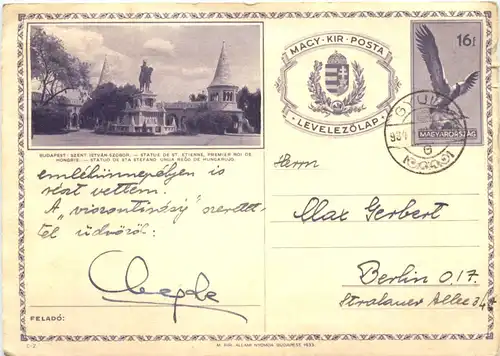 BUDAPEST · SZENT ISTVÁN SZOBOR. — STATUE DE ST. ETIENNE, PREMIER ROI DE
HONGRIE. — STATUO DE STA STEFANO UNUA REĜO DE HUNGARUJO.
emlékünnepélyen is
részt vettem.
A „viszontlátás" szeretet-
tel üdvözöl:
FELADÓ:
MAGY · KIR · POSTA
LEVELEZŐLAP
16f
MAGYARORSZÁG
GYULA
Herrn
Max Gerbert
Berlin O 17.
Stralauer Allee
C-2.
M. KIR. ÁLLAMI NYOMDA. BUDAPEST. 1933.